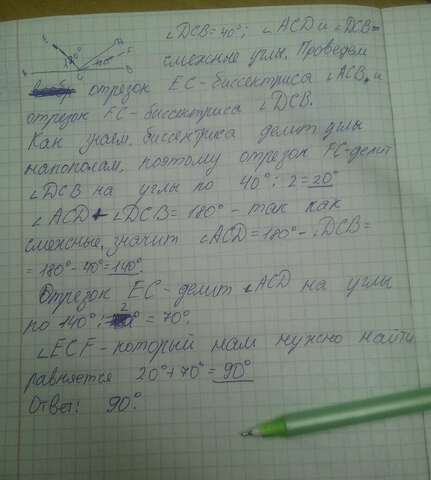 ∠DCB=40°; ∠ACD и ∠DCB=
смежные углы. Проведем
отрезок EC-биссектриса ∠ACB, и
отрезок FC-биссектриса ∠DCB.
Как знаем, биссектриса делит углы
напополам, поэтому отрезок FC-делит
∠DCB на углы по 40°:2=20°
∠ACD+∠DCB=180°-так как
смежные, значит ∠ACD=180°-∠DCB=
=180°-40°=140°.
Отрезок EC-делит ∠ACD на углы
по 140°:2=70°.
∠ECF-который нам нужно найти
равняется 20°+70°=90°
Ответ: 90°.